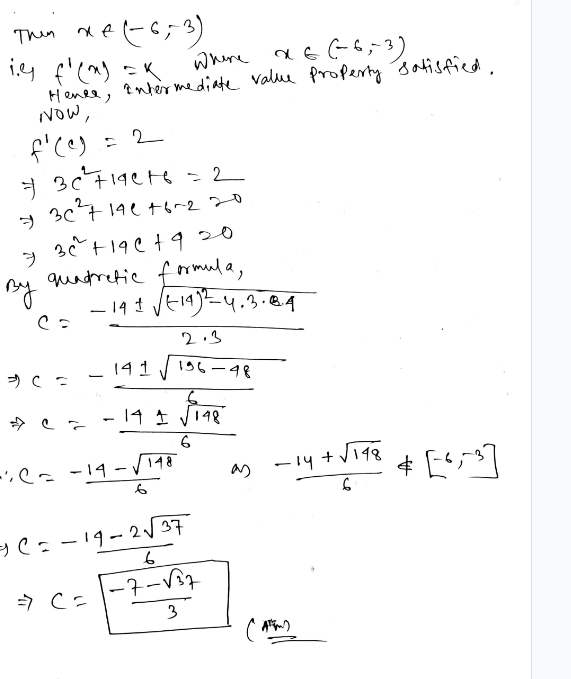 Then x ∈ (-6,-3)
i.e f'(x) = K where x ∈ (-6,-3)
Hence, intermediate value property satisfied.
Now,
f'(c) = 2
⇒ 3c²+14c+6 = 2
⇒ 3c²+14c+6-2=0
⇒ 3c²+14c+4=0
By quadretic formula,
c = (-14 ± √((-14)²-4.3.4))/2.3
⇒ c = (-14 ± √(196-48))/6
⇒ c = (-14 ± √148)/6
∴ c = (-14-√148)/6 as (-14+√148)/6 ∉ [-6,-3]
⇒ c = (-14-2√37)/6
⇒ c = (-7-√37)/3
(Ans)